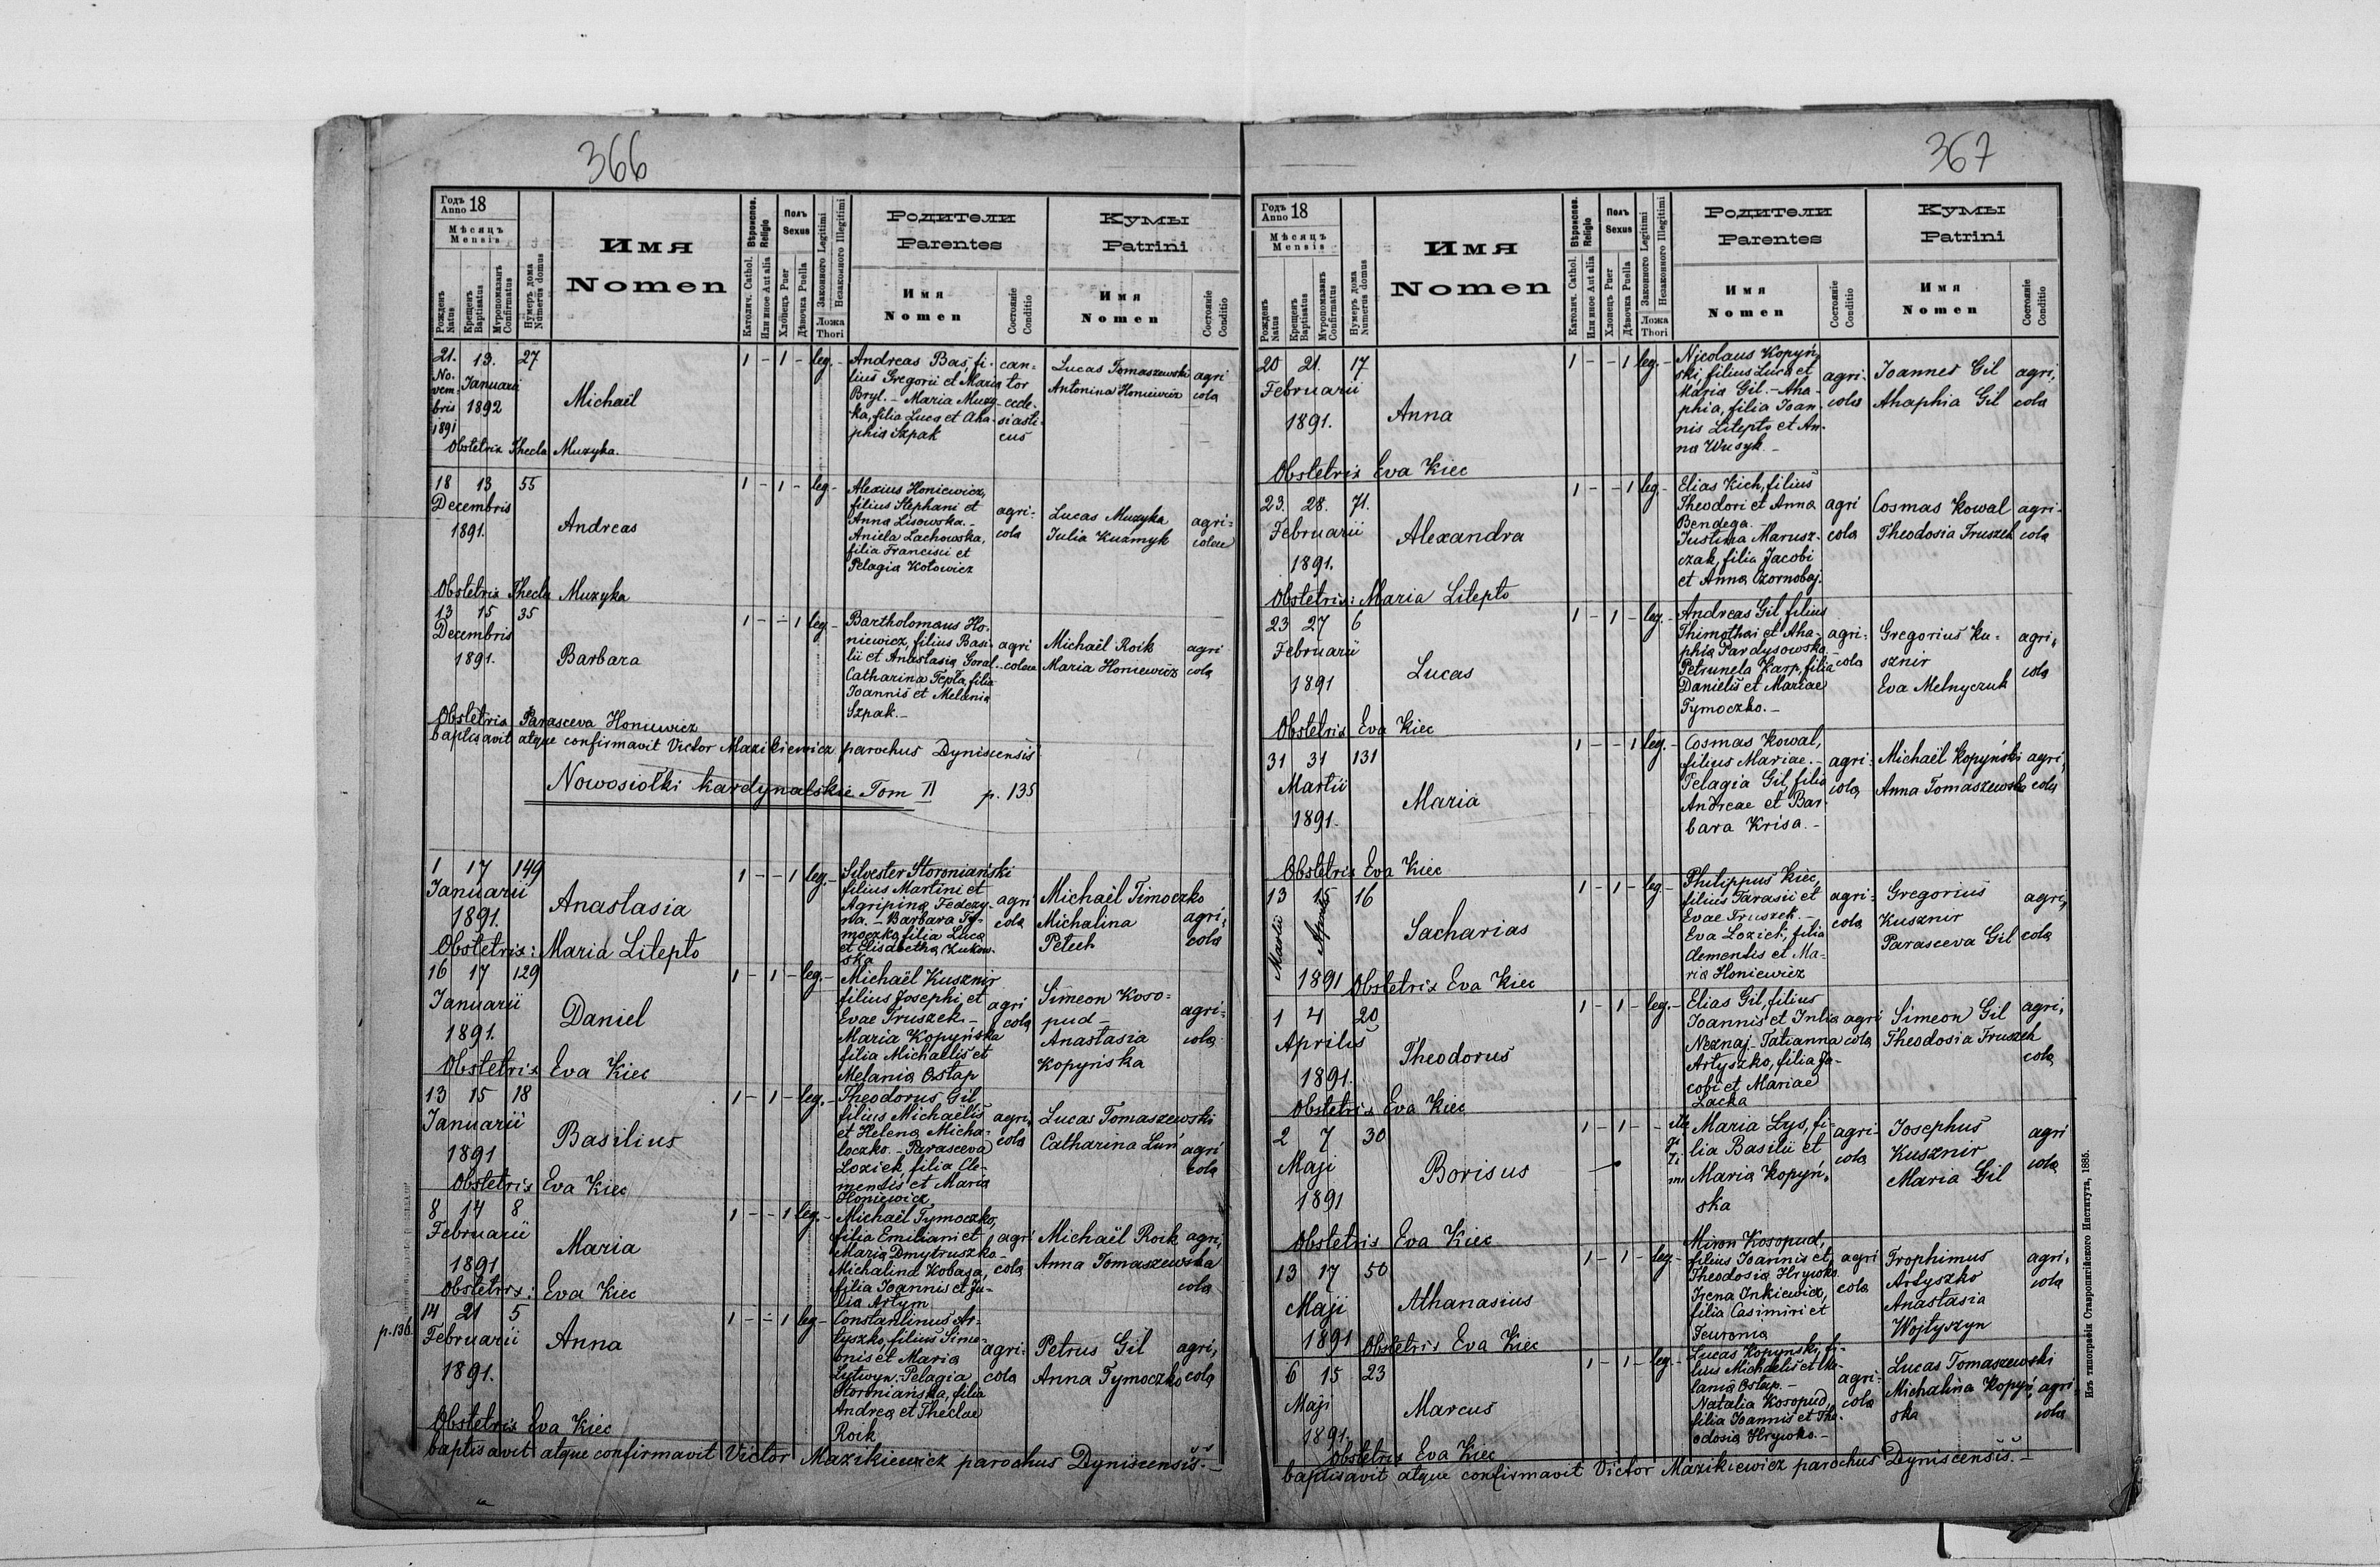 366
Годъ Anno 18
Мѣсяцъ Mensis
Рожденъ Natus
Крещенъ Baptisatus
Муропомазанъ Confirmatus
Нумеръ дома Numerus domus
Имя
Nomen
Вѣроиспов. Religio
Католич. Cathol.
Или иное Aut alia
Полъ Sexus
Хлопецъ Puer
Дѣвочка Puella
Законного Legitimi
Незаконного Illegitimi
Ложа Thori
Родители
Parentes
Имя
Nomen
Состояніе Conditio
Кумы
Patrini
Имя
Nomen
Состояніе Conditio
21. 13. 27
No-
vem-
bris
1891
Januarii
1892
Michaël
1 - 1 - leg. -
Andreas Bas, fi-
lius Gregorii et Maria
Bryl. - Maria Muzy-
ka, filia Luca et Aha-
phia Szpak
can-
tor
eccle-
siasti-
cus
Lucas Tomaszewski
Antonina Honiewicz
agri
cola
Obstetrix Thecla Muzyka.
18 13 55
Decembris
1891.
Andreas
1 - 1 - leg -
Alexius Honiewicz,
filius Stephani et
Anna Lisowska. -
Aniela Lachowska,
filia Francisci et
Pelagia Kotowicz
agri-
cola
Lucas Muzyka
Julia Kuzmyk
agri-
colae
Obstetrix Thecla Muzyka
13 15 35
Decembris
1891.
Barbara
1 - - 1 leg -
Bartholomaus Ho-
niewicz, filius Basi-
lii et Anastasia Goral -
Catharina Tepla, filia
Joannis et Melania
Szpak. -
agri
colae
Michaël Roik
Maria Honiewicz
agri
cola
Obstetrix Parasceva Honiewicz
baptisavit atque confirmavit Victor Mazikiewicz parochus Dyniscensis
Nowosiołki kardynalskie Tom II p. 135
1 17 149
Januarii
1891.
Anastasia
1 - - 1 leg. -
Silvester Storoniański
filius Martini et
Agripina Fedczy-
na. - Barbara Ty-
moczko, filia Luca
et Elisabetha Żukow-
ska
agri
cola
Michaël Timoczko
Michalina
Petech
agri,
cola
Obstetrix: Maria Litepto
16 17 129
Januarii
1891.
Daniel
1 - 1 - leg. -
Michaël Kusznir
filius Josephi et
Evae Truszek. -
Maria Kopyńska
filia Michaelis et
Melania Ostap
agri
cola
Simeon Koso-
pud -
Anastasia
Kopyńska
agri-
cola
Obstetrix Eva Kiec
13 15 18
Januarii
1891
Basilius
1 - 1 - leg. -
Theodorus Gil
filius Michaelis
et Helena Micha-
loczko. - Parasceva
Lozick, filia Cle-
mentis et Maria
Honiewicz
agri,
cola
Lucas Tomaszewski
Catharina Luń
agri
cola
Obstetrix Eva Kiec
8 14 8
Februarii
1891
Maria
1 - - 1 leg. -
Michaël Tymoczko,
filia Emiliani et
Maria Dmytruszko -
Michalina Kobasa,
filia Joannis et Ju-
lia Artym
agri
cola
Michaël Roik
Anna Tomaszewska
agri,
cola
Obstetrix: Eva Kiec
p. 136.
14 21 5
Februarii
1891.
Anna
1 - - 1 leg -
Constantinus Ar-
tyszko, filius Sime-
onis et Maria
Lytwyn. - Pelagia
Storoniańska, filia
Andrea et Theclae
Roik
agri-
cola
Petrus Gil
Anna Tymoczko
agri,
cola
Obstetrix Eva Kiec
baptisavit atque confirmavit Victor Mazikiewicz parochus Dyniscensis. -
367
Годъ Anno 18
Мѣсяцъ Mensis
Рожденъ Natus
Крещенъ Baptisatus
Муропомазанъ Confirmatus
Нумеръ дома Numerus domus
Имя
Nomen
Вѣроиспов. Religio
Католич. Cathol.
Или иное Aut alia
Полъ Sexus
Хлопецъ Puer
Дѣвочка Puella
Законного Legitimi
Незаконного Illegitimi
Ложа Thori
Родители
Parentes
Имя
Nomen
Состояніе Conditio
Кумы
Patrini
Имя
Nomen
Состояніе Conditio
20 21. 17
Februarii
1891.
Anna
1 - - 1 leg. -
Nicolaus Kopyń,
ski, filius Luca et
Maria Gil. - Aha-
phia, filia Joan-
nis Litepto et An-
na Wusyk. -
agri-
cola
Joannes Gil
Ahaphia Gil
agri,
cola
Obstetrix Eva Kiec
23. 28. 71.
Februarii
1891.
Alexandra
1 - - 1 leg. -
Elias Kich, filius
Theodori et Anna
Bendega. -
Justina Marusz-
czak, filia Jacobi
et Anna Czornobaj.
agri
cola
Cosmas Kowal
Theodosia Truszek
agri-
cola
Obstetrix: Maria Litepto
23 27 6
Februarii
1891
Lucas
1 - 1 - leg. -
Andreas Gil, filius
Thimothai et Aha-
phia Pardysowska -
Petrunela Karp, filia
Danielis et Mariae
Tymoczko. -
agri-
cola
Gregorius Ku-
sznir
Eva Melnyczuk
agri,
cola
Obstetrix Eva Kiec
31 31 131
Martii
1891.
Maria
1 - - 1 leg. -
Cosmas Kowal,
filius Mariae. -
Pelagia Gil, filia
Andreae et Bar-
bara Krisa. -
agri-
cola
Michaël Kopyński
Anna Tomaszewska
agri,
cola
Obstetrix Eva Kiec
13 15 16
Martii Aprilis
1891
Sacharias
1 - 1 - leg -
Philippus Kiec,
filius Tarasii et
Evae Truszek. -
Eva Lozick, filia
Clementis et Ma-
ria Honiewicz
agri-
cola
Gregorius
Kusznir
Parasceva Gil
agri,
cola
Obstetrix Eva Kiec
1 4 20
Aprilis
1891.
Theodorus
1 - 1 - leg. -
Elias Gil, filius
Joannis et Julia
Neznaj - Tatianna
Artyszko, filia Ja-
cobi et Mariae
Lacka
agri
cola
Simeon Gil
Theodosia Truszek
agri,
cola
Obstetrix Eva Kiec
2 7 30
Maji
1891
Borisus
1 - 1 - -
Maria Lys, fi-
lia Basilii et
Maria Kopyń,
ska
agri-
cola
Josephus
Kusznir
Maria Gil
agri
cola
Obstetrix Eva Kiec
13 17 50
Maji
1891
Athanasius
1 - 1 - leg. -
Miron Kosopud,
filius Joannis et
Theodosia Hrywko.
Irena Inkiewicz,
filia Casimiri et
Feuronia
agri
cola
Trophimus
Artyszko
Anastasia
Wojtyszyn
agri,
cola
Obstetrix Eva Kiec
6 15 23
Maji
1891.
Marcus
1 - 1 - leg. -
Lucas Kopynski, fi-
lius Michaelis et Me-
lania Ostap. -
Natalia Kosopud,
filia Joannis et The-
odosia Hrywko. -
agri-
cola
Lucas Tomaszewski
Michalina Kopyń
ska
agri,
cola
Obstetrix Eva Kiec
baptisavit atque confirmavit Victor Mazikiewicz parochus Dyniscensis. -
Изъ типографіи Ставропигійского Института, 1885.